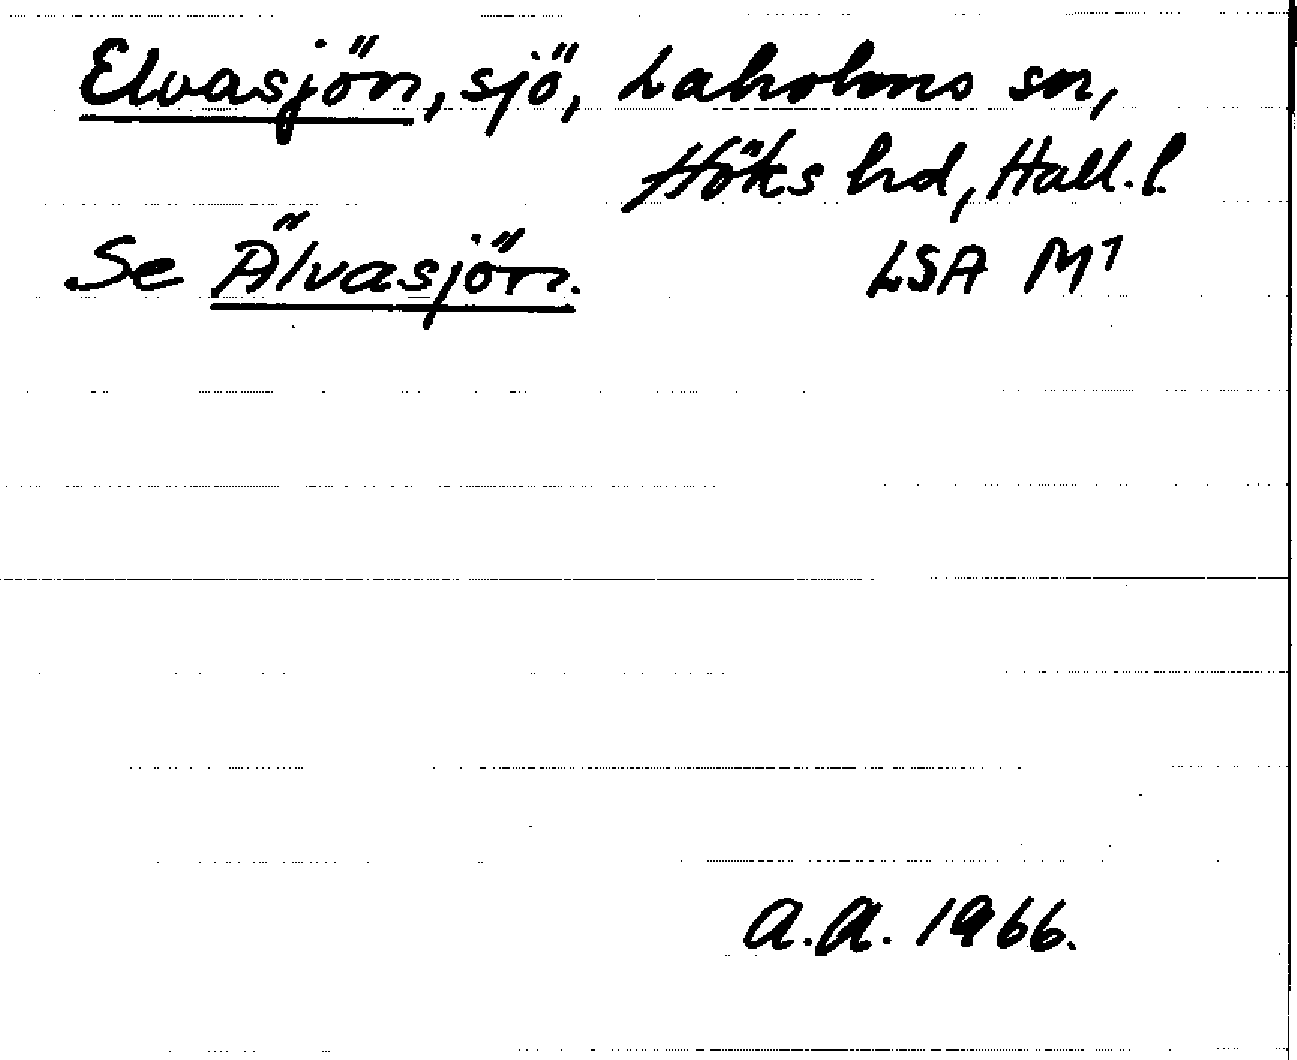 Elvasjön, sjö, Laholms sn,
Höks hd, Hall. l.
Se Älvasjön. LSA M1
a.a. 1966.